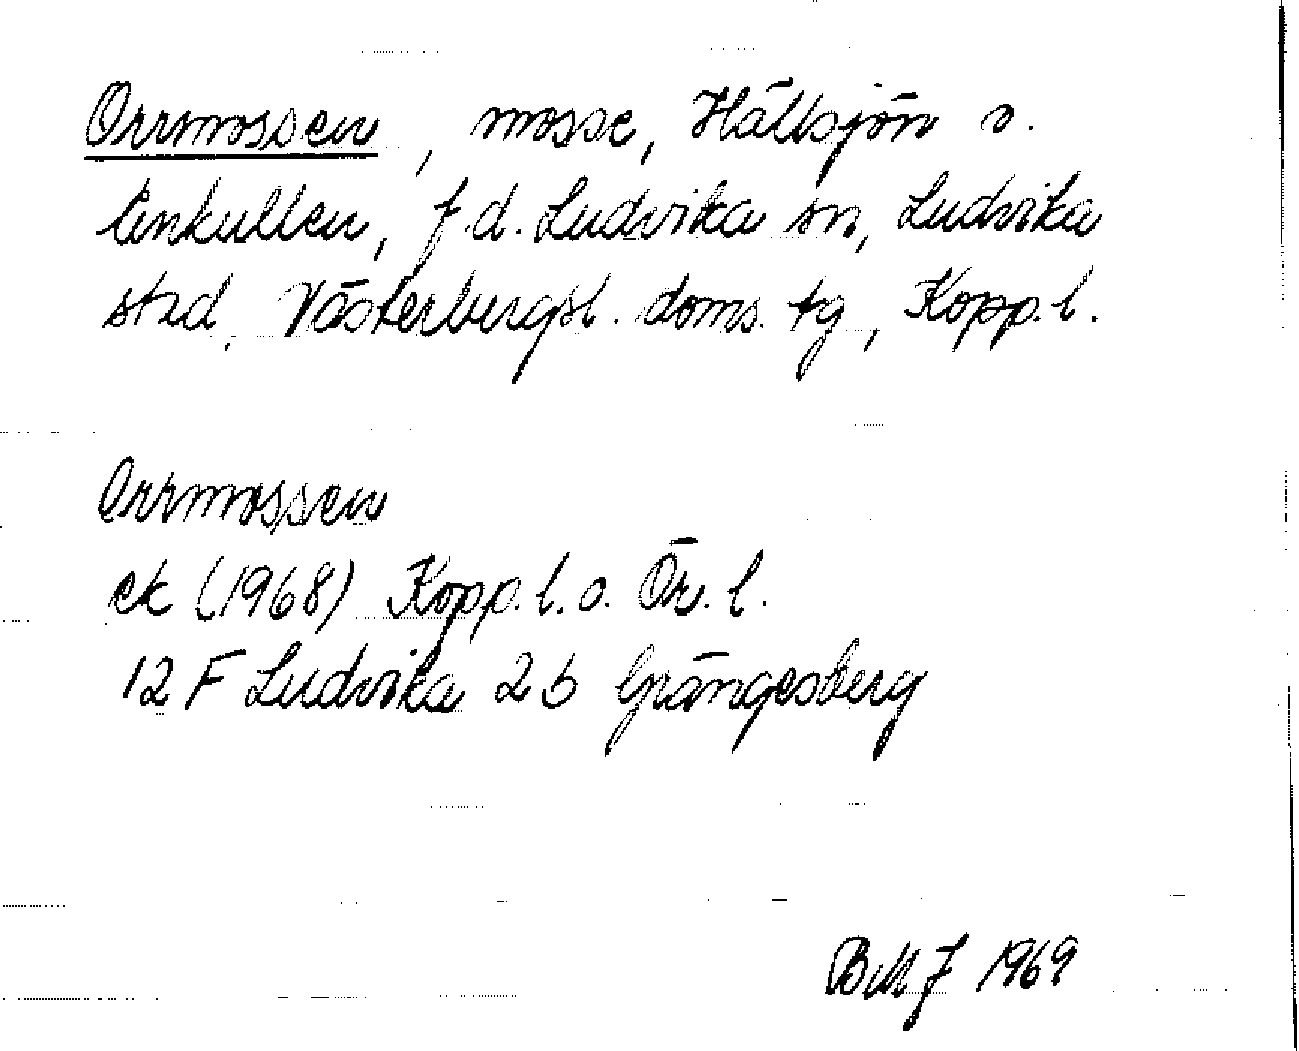 Orrmossen, mosse, Hällsjön o.
Enkullen, f.d. Ludvika sn, Ludvika
stad, Västerbergsl. doms. tg, Kopp.l.
Orrmossen
ek (1968) Kopp.l. o. Ör.l.
12 F Ludvika 2b Grängesberg
BMJ 1969